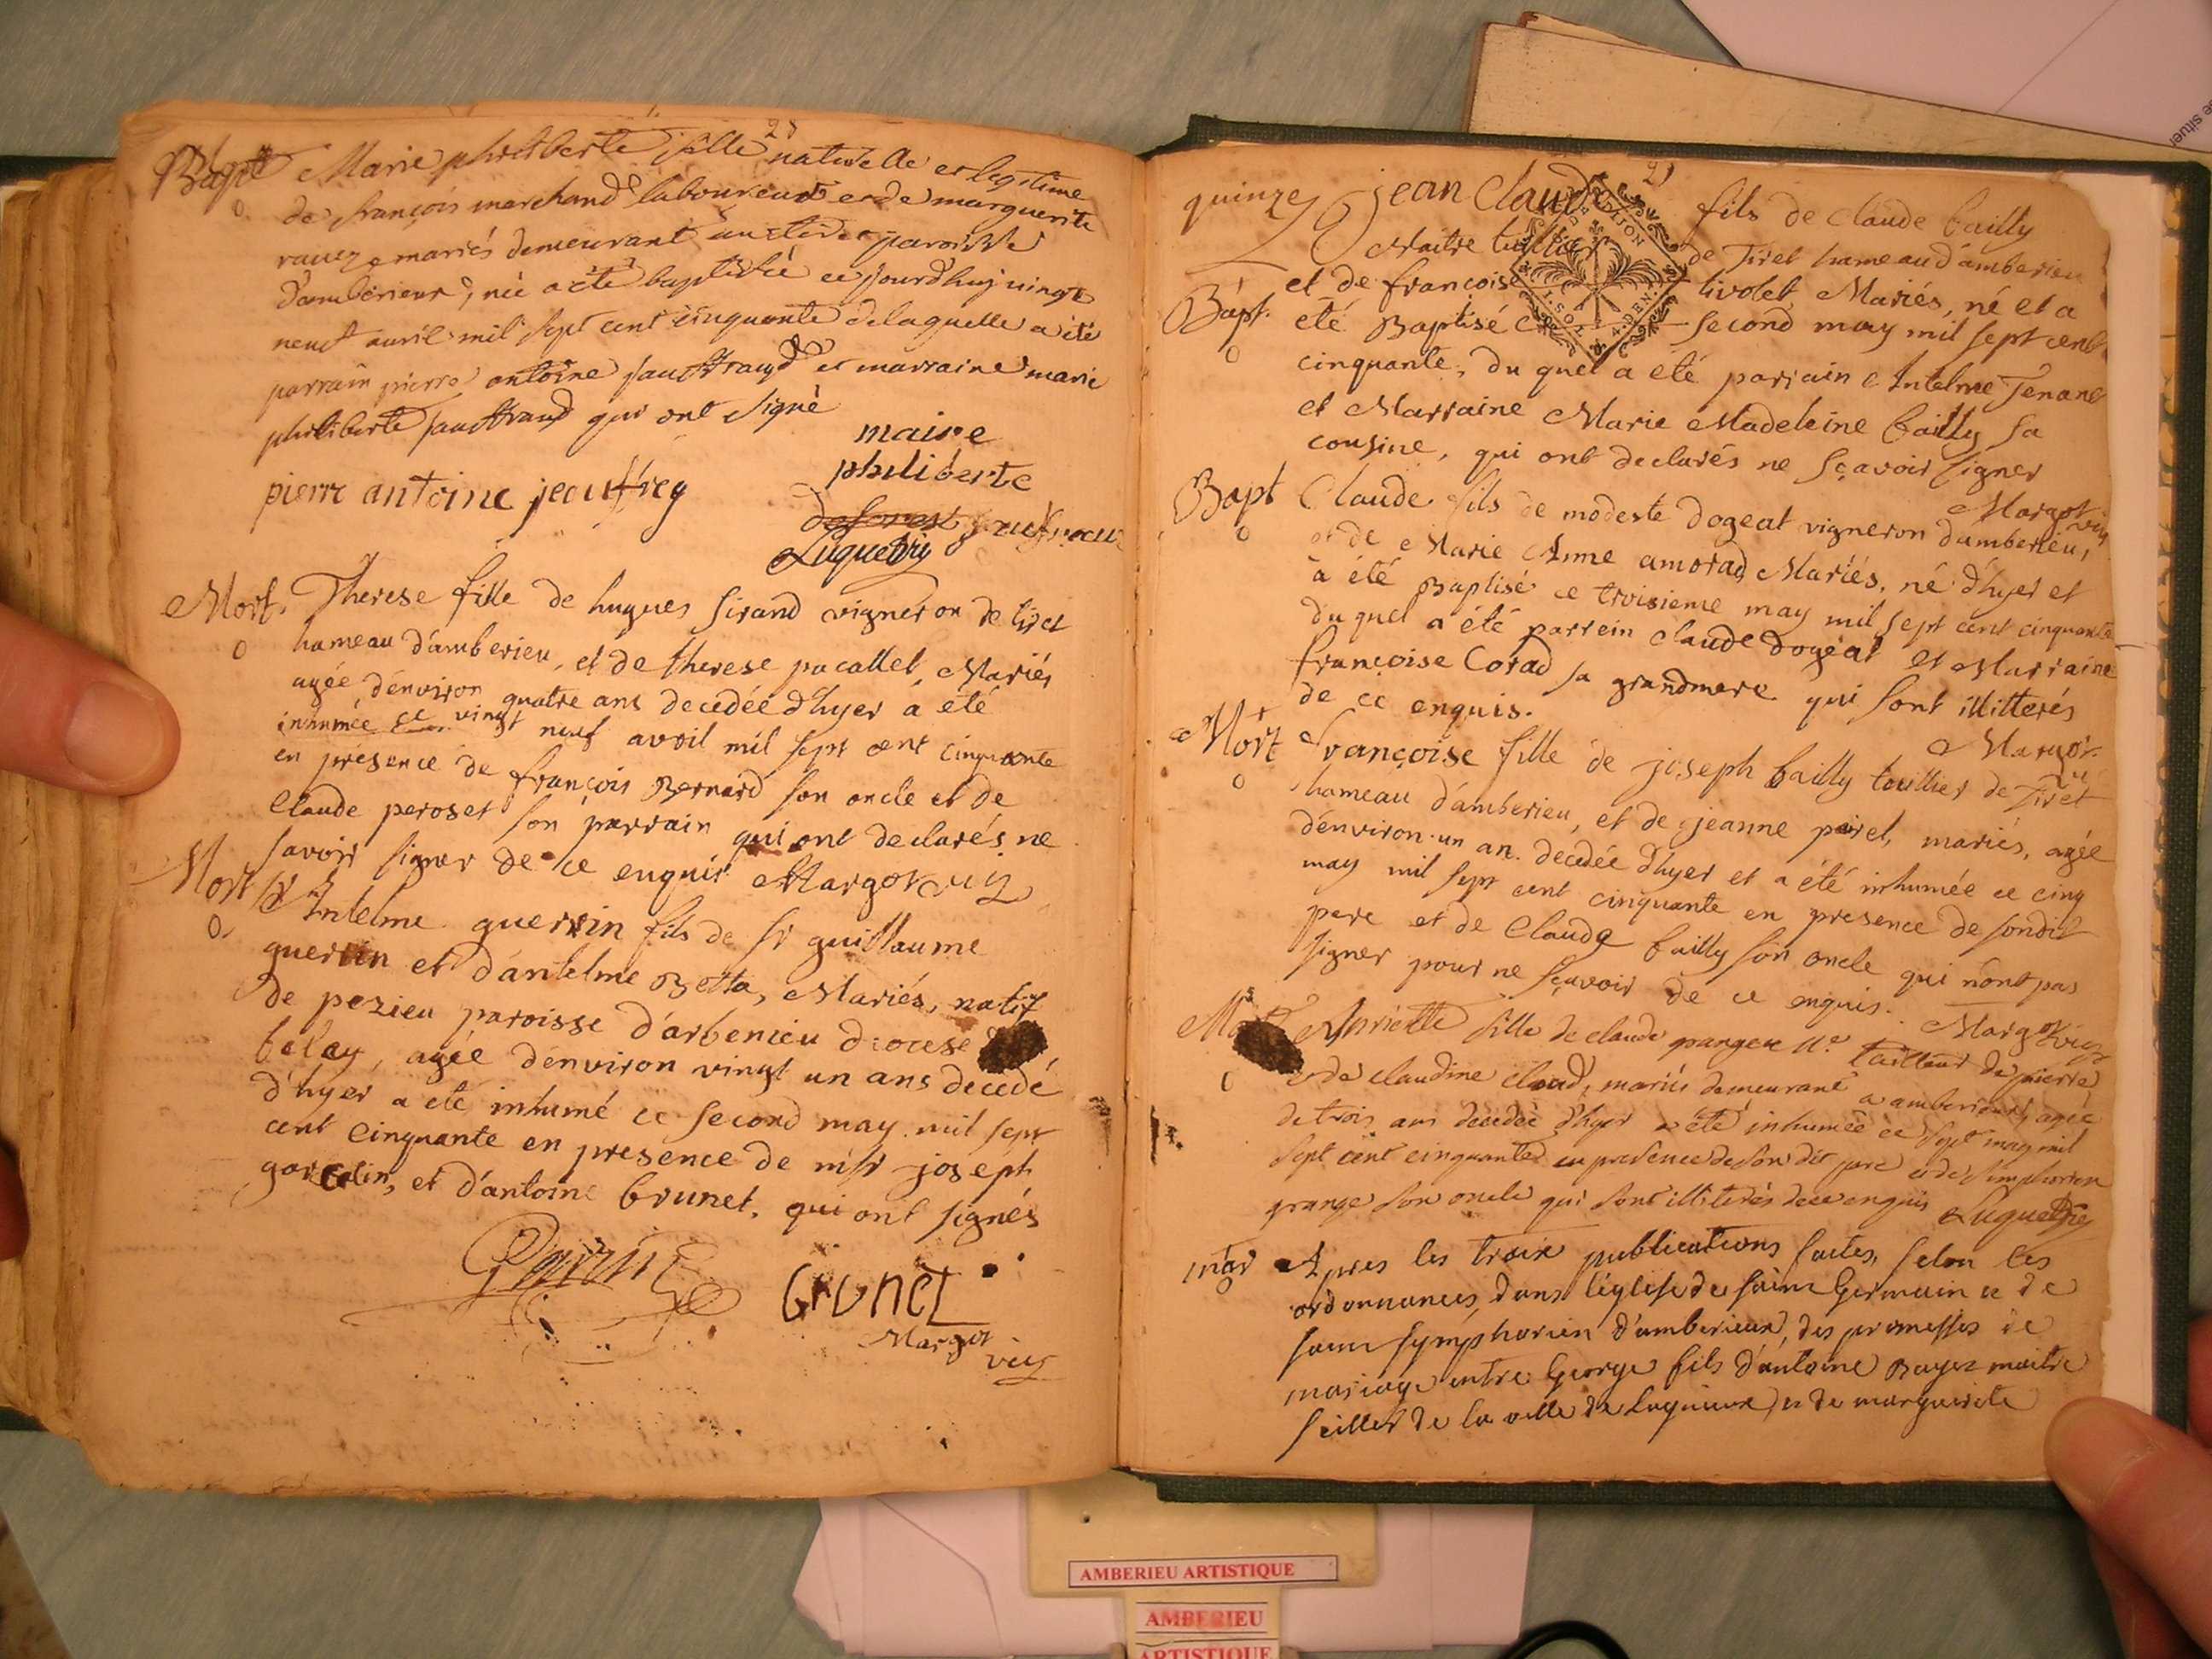 Bapt Marie philiberte fille naturelle et legitime
de françois marchand laboureur et de marguerite
mariés demeurant paroisse
d'amberieux, née a été baptisée ce jourd'huy vingt
neuf avril mil sept cent cinquante de laquelle a été
parrain pierre antoine jauffraud et marraine marie
philiberte jauffraud qui ont signé
maire
philiberte
pierre antoine jeouffrey
Mort. Therese fille de hugues sirand vigneron de tiret
hameau d'amberieu, et de therese pacallet, Mariés
agée d'environ quatre ans decedée d'hyer a été
inhumée ce vingt neuf avril mil sept cent cinquante
en présence de françois Bernard son oncle et de
Claude peroset son parrain qui ont declarés ne
savoir signer de ce enquis Margot vic
Mort Sr Antelme guerrin fils de Sr guillaume
guerrin et d'antelme Betta, Mariés, natif
de pezieu paroisse d'arbenieu diocese
belay, agée d'environ vingt un ans decedé
d'hyer a été inhumé ce second may mil sept
cent Cinquante en presence de joseph
et d'antoine brunet, qui ont signés
brunet
Margot
vic
quinze jean Claude fils de claude bailly
Maitre tuillier de Tiret hameau d'amberieu
et de françoise tivolet Mariés, né et a
Bapt. été Baptisé ce second may mil sept cent
cinquante, du quel a été parrain Antelme Tenand
et Marraine Marie Madeleine bailly sa
cousine, qui ont declarés ne sçavoir signer
Margot vic
Bapt Claude fils de modeste dogeat vigneron d'amberieu,
et de Marie Anne amorad Mariés, né d'hyer et
à été Baptisé ce troisieme may mil sept cent cinquante
du quel a été parrein claude dogeat et Marraine
françoise Corad sa grandmere qui sont illitterés
de ce enquis.
Margot
Mort françoise fille de joseph bailly touillier de Tiret
hameau d'amberieu, et de jeanne peiret, mariés, agée
d'environ un an. decedée d'hyer et a été inhumée ce cinq
may mil sept cent cinquante en presence de sondit
pere et de Claude bailly son oncle qui n'ont pas
signer pour ne sçavoir de ce enquis.
Margot vic
fille de claude grange Me tailleur de pierre
et de claudine mariés demeurant a amberieux, agée
de trois ans decedée d'hyer a été inhumée ce sept may mil
sept cent cinquante en presence de son dit pere et de simphorien
grange son oncle qui sont illiterés de ce enquis
mar Apres les trois publications faites, selon les
ordonnances, dans l'église de saint Germain et de
saint symphorien d'amberieux, des promesses de
mariage entre George fils d'antoine Bayer maitre
de la ville de lagnieux, et de marguerite
AMBERIEU ARTISTIQUE
AMBERIEU
ARTISTIQUE